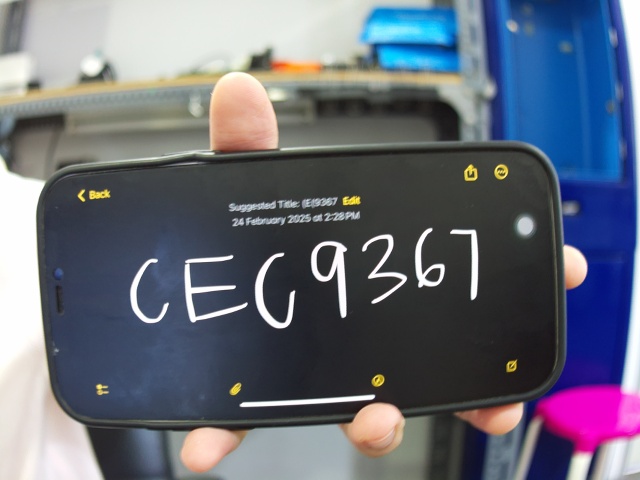 Back
Suggested Title: (E(9367 Edit
24 February 2025 at 2:28 PM
CEC9367